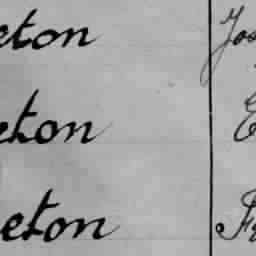 eton Jos
eton E
eton Fr